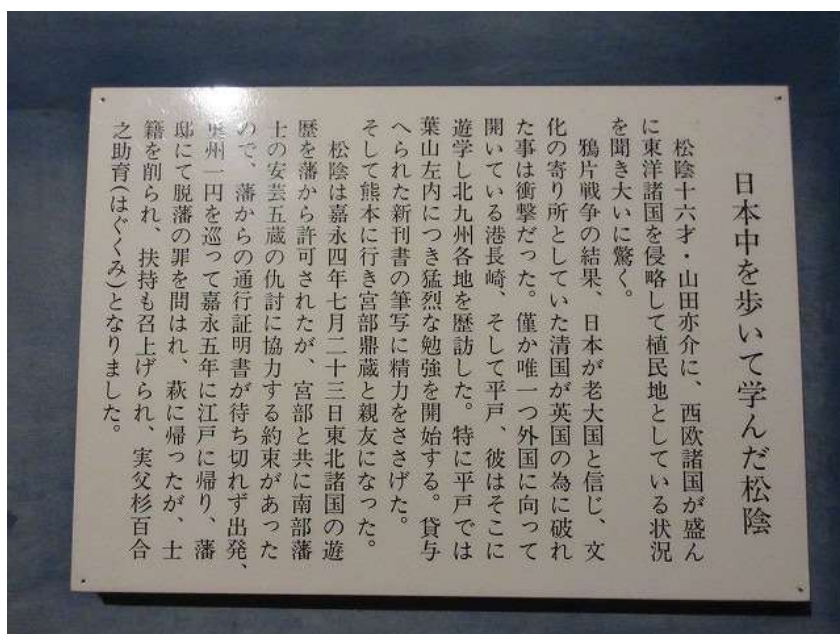 日本中を歩いて学んだ松陰
松陰十六才・山田亦介に、西欧諸国が盛ん
に東洋諸国を侵略して植民地としている状況
を聞き大いに驚く。
鴉片戦争の結果、日本が老大国と信じ、文
化の寄り所としていた清国が英国の為に破れ
た事は衝撃だった。僅か唯一つ外国に向って
開いている港長崎、そして平戸、彼はそこに
遊学し北九州各地を歴訪した。特に平戸では
葉山左内につき猛烈な勉強を開始する。貸与
へられた新刊書の筆写に精力をささげた。
そして熊本に行き宮部鼎蔵と親友になった。
松陰は嘉永四年七月二十三日東北諸国の遊
歴を藩から許可されたが、宮部と共に南部藩
士の安芸五蔵の仇討に協力する約束があった
ので、藩からの通行証明書が待ち切れず出発、
奥州一円を巡って嘉永五年に江戸に帰り、藩
邸にて脱藩の罪を問はれ、萩に帰ったが、士
籍を削られ、扶持も召上げられ、実父杉百合
之助育(はぐくみ)となりました。